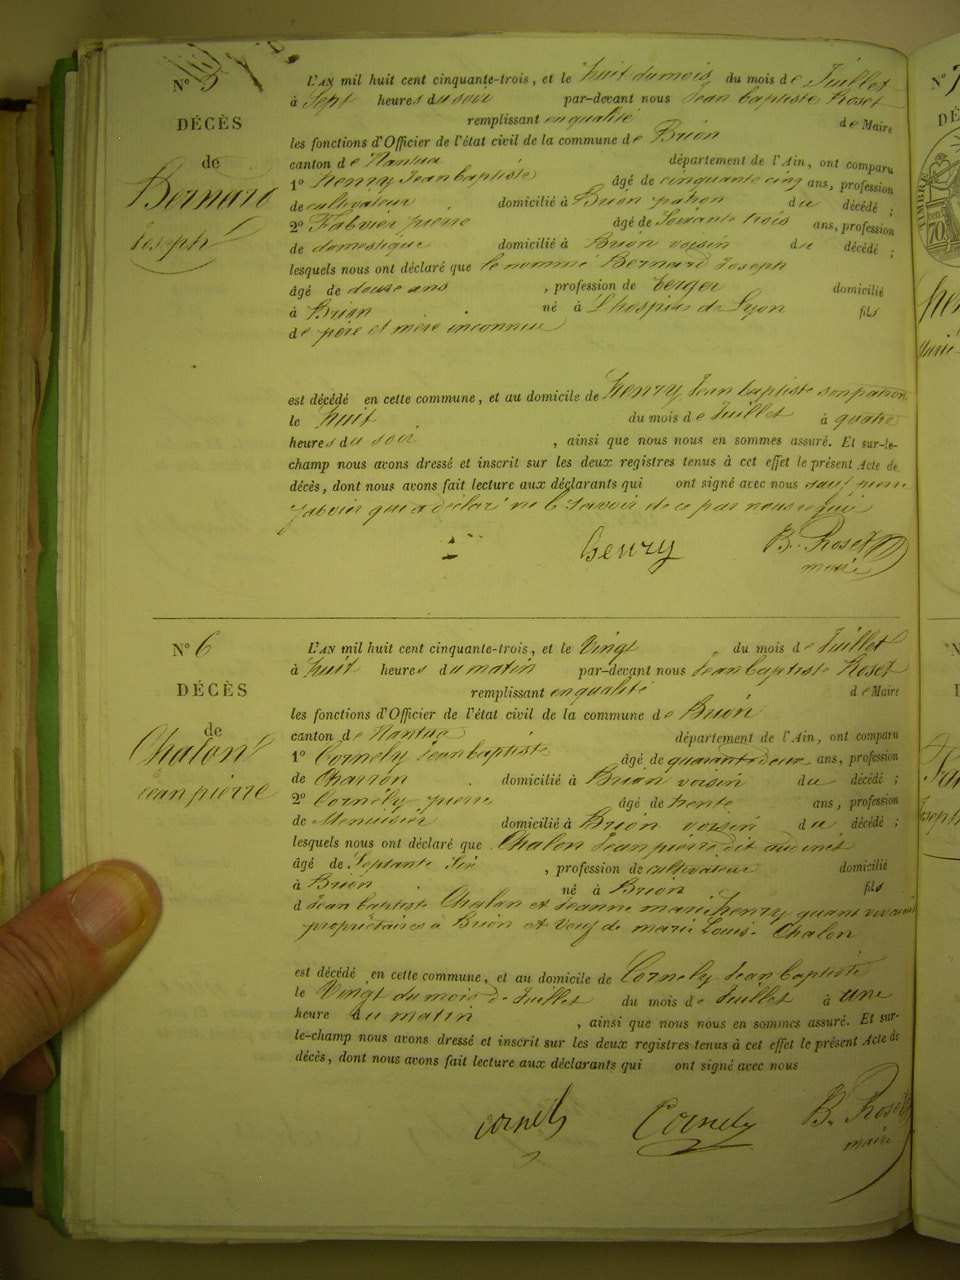 N° 5
DÉCÈS
de
Bernard
Joseph
L'AN mil huit cent cinquante-trois, et le huit du mois du mois de Juillet
à Sept heures du soir par-devant nous Jean baptiste Roset
remplissant en qualité de Maire
les fonctions d'Officier de l'état civil de la commune de Brion
canton de Nantua département de l'Ain, ont comparu
1° henry Jean baptiste âgé de cinquante cinq ans, profession
de cultivateur domicilié à Brion patron du décédé ;
2° Fabvier pierre âgé de Soixante trois ans, profession
de domestique domicilié à Brion voisin du décédé ;
lesquels nous ont déclaré que le nommé Bernard Joseph
âgé de douze ans , profession de berger domicilié
à Brion né à L'hospice de Lyon fils
de père et mère inconnue
est décédé en cette commune, et au domicile de henry Jean baptiste son patron
le huit du mois de Juillet à quatre
heures du soir , ainsi que nous nous en sommes assuré. Et sur-le-
champ nous avons dressé et inscrit sur les deux registres tenus à cet effet le présent Acte de
décès, dont nous avons fait lecture aux déclarants qui ont signé avec nous sauf pierre
fabvier qui a déclaré ne le Savoir de ce par nous requi
henry B. Roset
maire
N° 6
DÉCÈS
de
Chalon
jean pierre
L'AN mil huit cent cinquante-trois, et le Vingt du mois de Juillet
à huit heures du matin par-devant nous Jean baptiste Roset
remplissant en qualité de Maire
les fonctions d'Officier de l'état civil de la commune de Brion
canton de Nantua département de l'Ain, ont comparu
1° Cornely Jean baptiste âgé de quarante deux ans, profession
de Charron domicilié à Brion voisin du décédé ;
2° Cornély pierre âgé de trente ans, profession
de Menuisier domicilié à Brion voisin du décédé ;
lesquels nous ont déclaré que Chalon Jean pierre dit
âgé de Septante Six , profession de cultivateur domicilié
à Brion né à Brion fils
d Jean baptiste Chalon et Jeanne marie henry quand vivaient
propriétaires à Brion et Veuf de marie Louis. Chalon
est décédé en cette commune, et au domicile de Cornely Jean baptiste
le Vingt du mois de Juillet du mois de Juillet à une
heure du matin , ainsi que nous nous en sommes assuré. Et sur-
le-champ nous avons dressé et inscrit sur les deux registres tenus à cet effet le présent Acte de
décès, dont nous avons fait lecture aux déclarants qui ont signé avec nous
cornely Cornely B. Roset
maire
N° 7